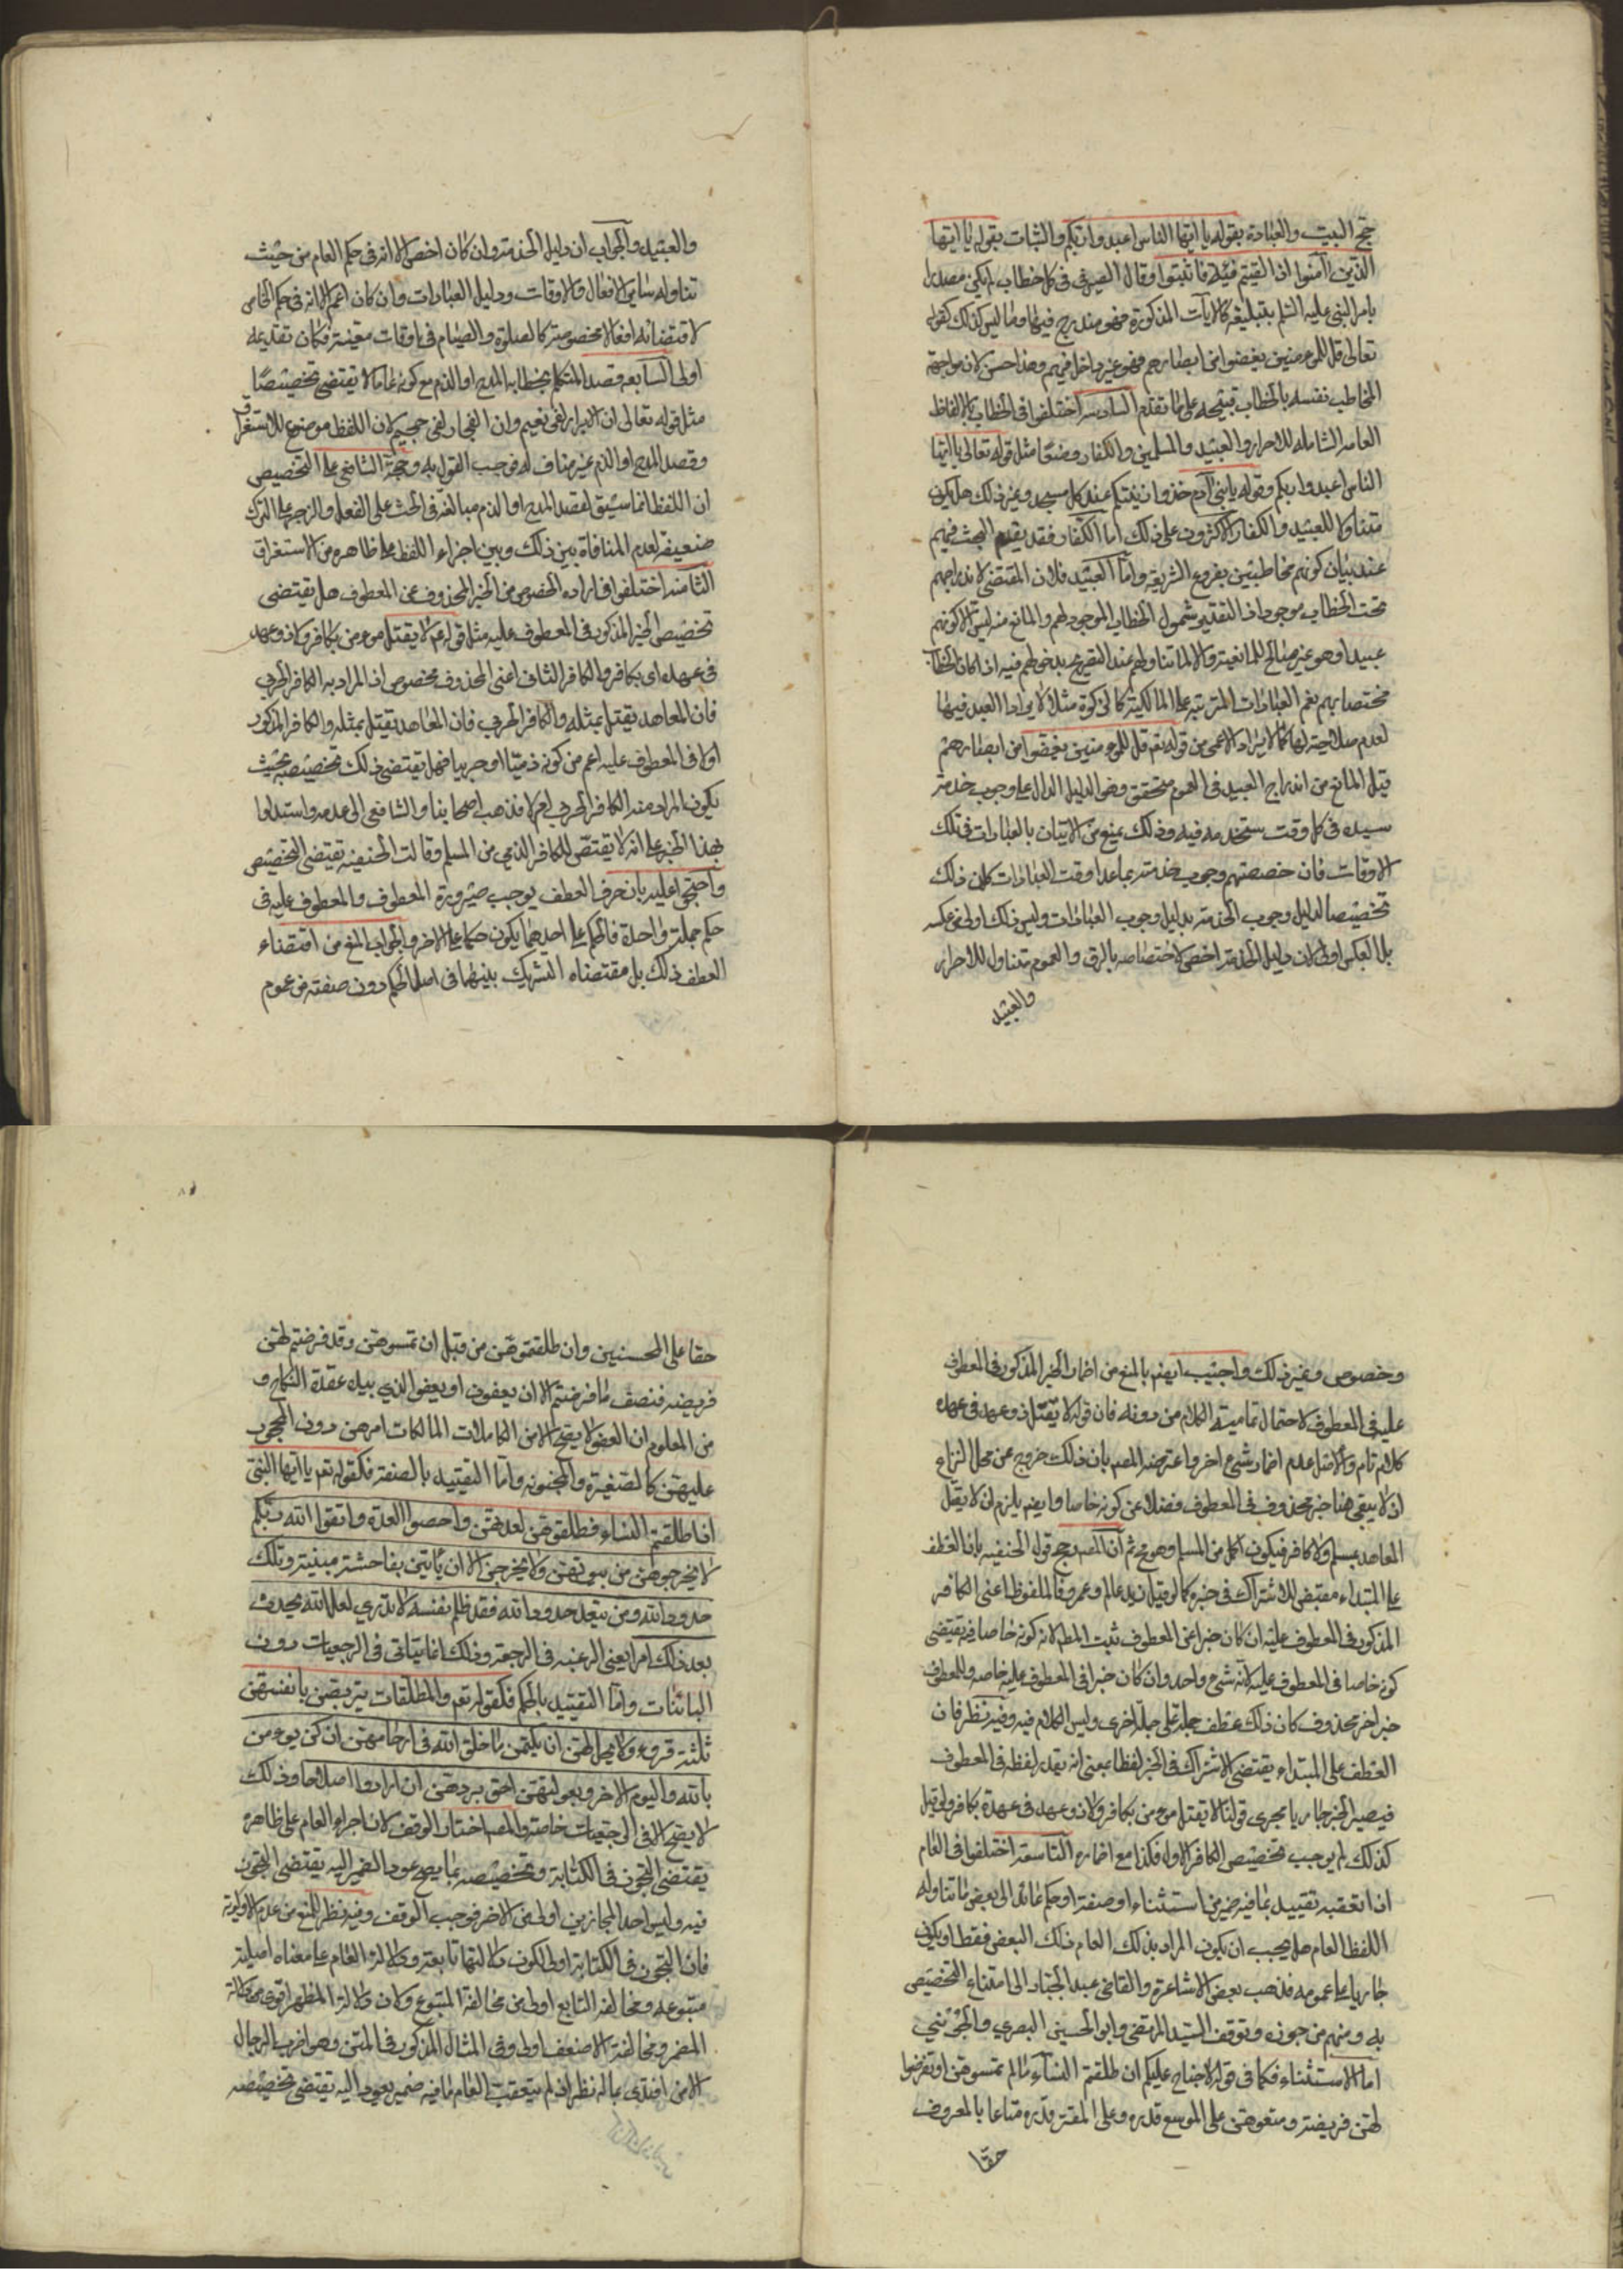 حج البيت والعبادة بقوله يا ايها الناس اعبدوا ربكم والثبات بقوله يا ايها
الذين آمنوا اذا لقيتم فئة فاثبتوا وقال الصيرفي في كل خطاب لم يكن مصدرا
بامر النبي عليه السلم بتبليغه كالايات المذكورة فهو مندرج فيها وما ليس كذلك كقوله
تعالى قل للمؤمنين يغضوا من ابصارهم فهو غير داخل فيهم وهذا حسن لان مواجهة
المخاطب نفسه بالخطاب قبيحه على ما تقدم السادسه اختلفوا في الخطاب بالالفاظ
العامه الشامله للاحرار والعبيد والمسلمين والكفار وضعا مثل قوله تعالى يا ايها
الناس اعبدوا ربكم وقوله يا بني آدم خذوا زينتكم عند كل مسجد وغير ذلك هل يكون
متناولا للعبيد والكفار الاكثرون على ذلك اما الكفار فقد تقدم البحث فيهم
عند بيان كونهم مخاطبين بفروع الشريعة واما العبيد فلان المقتضي لاندراجهم
تحت الخطاب موجود اذ التقدير شمول الخطاب الموجود لهم والمانع منه ليس الا كونهم
عبيدا وهو غير صالح للمانعية والا لما تناولهم عند التصريح بدخولهم فيه اذا كان الخطاب
مختصا بهم نعم العبادات المترتبه على المالكية كالزكوة مثلا لا يراد العبد فيها
لعدم صلاحيته لها كما لا يراد الاعمى من قوله تعم قل للمؤمنين يغضوا من ابصارهم
قيل المانع من اندراج العبيد في العموم متحقق وهو الدليل الدال على وجوب خدمة
سيده في كل وقت يستخدمه فيه وذلك يمنع من الاتيان بالعبادات في تلك
الاوقات فان خصصتهم وجوب خدمته بما عدا وقت العبادات كان ذلك
تخصيصا لدليل وجوب الخدمة بدليل وجوب العبادات وليس ذلك اولى من عكسه
بل العكس اولى لان دليل الخدمة اخص لاختصاصه بالرق والعموم متناول للاحرار
والعبيد
والعبيد والجواب ان دليل الخدمة وان كان اخص الا انه في حكم العام من حيث
تناوله سائر الافعال والاوقات ودليل العبادات وان كان اعم الا انه في حكم الخاص
لاقتضائه افعالا مخصوصة كالصلوة والصيام في اوقات معينة فكان تقديمه
اولى السابعه قصد المتكلم بخطابه المدح او الذم مع كونه عاما لا يقتضي تخصيصا
مثل قوله تعالى ان الابرار لفي نعيم وان الفجار لفي جحيم لان اللفظ موضوع للاستغراق
وقصد المدح او الذم غير مناف له فوجب القول به وحجة الشافعي على التخصيص
ان اللفظ انما سيق لقصد المدح او الذم مبالغة في الحث على الفعل والزجر على الترك
ضعيفه لعدم المنافاة بين ذلك وبين اجراء اللفظ على ظاهره من الاستغراق
الثامنه اختلفوا في اراده الخصوص من الخبر المحذوف عن المعطوف هل يقتضي
تخصيص الخبر المذكور في المعطوف عليه مثل قوله عم لا يقتل مؤمن بكافر ولا ذو عهد
في عهده اي بكافر والكافر الثاني اعني المحذوف مخصوص اذ المراد به الكافر الحربي
فان المعاهد يقتل بمثله والكافر الحربي فان المعاهد يقتل بمثله والكافر المذكور
اولا في المعطوف عليه اعم من كونه ذميا او حربيا فهل يقتضي ذلك تخصيصه بحيث
يكون المراد منه الكافر الحربي ام لا فذهب اصحابنا والشافعي الى عدمه واستدلوا
بهذا الخبر على انه لا يقتص للكافر الذمي من المسلم وقالت الحنفيه تقتضي التخصيص
واحتجوا عليه بان حرف العطف يوجب صيرورة المعطوف والمعطوف عليه في
حكم جملة واحدة فالحكم على احدهما يكون حكما على الاخر والجواب المنع من اقتضاء
العطف ذلك بل مقتضاه التشريك بينهما في اصل الحكم دون صفته من عموم
وخصوص وغير ذلك واجيب ايضم بالمنع من اضمار الخبر المذكور في المعطوف
عليه في المعطوف لاحتمال تمامية الكلام من دونه فان قوله لا يقتل ذو عهد في عهده
كلام تام والاصل عدم اضمار شيء اخر واعترضه المصم بان ذلك خروج عن محل النزاع
اذ لا يبقى هنا خبر محذوف في المعطوف فضلا عن كونه خاصا وايضم يلزم ان لا يقتل
المعاهد بمسلم ولا كافر فيكون اكمل من المسلم وهو مح ثم ان المصم رجح قول الحنفيه بان العطف
على المبتداء مقتض للاشتراك في خبره كما لو قيل زيد عالم وعمرو فالملفوظ اعني الكافر
المذكور في المعطوف عليه ان كان خبرا عن المعطوف ثبت المط لانه كونه خاصا فيه تقتضي
كونه خاصا في المعطوف عليه لانه شيء واحد وان كان خبرا في المعطوف عليه خاصه وللمعطوف
خبر اخر محذوف كان ذلك عطف جملة على جملة اخرى وليس الكلام فيه وفيه نظر فان
العطف على المبتداء يقتضي الاشتراك في الخبر لفظا بمعنى انه يقدر لفظه في المعطوف
فيصير الخبر جاريا مجرى قولنا لا يقتل مؤمن بكافر ولا ذو عهد في عهده بكافر ولو قيل
كذلك لم يوجب تخصيص الكافر الاول فكذا مع اضماره التاسعة اختلفوا في العام
اذا تعقبه تقييد بما فيه ضمير من استثناء او صفة او حكم عائد الى بعض ما تناوله
اللفظ العام هل يجب ان يكون المراد بذلك العام ذلك البعض فقط او يكون
جاريا على عمومه فذهب بعض الاشاعرة والقاضي عبد الجبار الى امتناع التخصيص
به ومنهم من جوزه وتوقف السيد المرتضى وابو الحسين البصري والجويني
اما الاستثناء فكما في قوله لا جناح عليكم ان طلقتم النساء ما لم تمسوهن او تفرضوا
لهن فريضة ومتعوهن على الموسع قدره وعلى المقتر قدره متاعا بالمعروف
حقا
حقا على المحسنين وان طلقتموهن من قبل ان تمسوهن وقد فرضتم لهن
فريضه فنصف ما فرضتم الا ان يعفون او يعفو الذي بيده عقدة النكاح و
من المعلوم ان العفو لا يصح الا من الكاملات المالكات امرهن دون المحجور
عليهن كالصغيرة والمجنونه واما التقييد بالصفة فكقوله تعم يا ايها النبي
اذا طلقتم النساء فطلقوهن لعدتهن واحصوا العدة واتقوا الله ربكم
لا تخرجوهن من بيوتهن ولا يخرجن الا ان يأتين بفاحشة مبينة وتلك
حدود الله ومن يتعد حدود الله فقد ظلم نفسه لا تدري لعل الله يحدث
بعد ذلك امرا يعني الرغبه في الرجعة وذلك انما يتاتى في الرجعيات دون
البائنات واما التقييد بالحكم فكقوله تعم والمطلقات يتربصن بانفسهن
ثلثة قروء ولا يحل لهن ان يكتمن ما خلق الله في ارحامهن ان كن يؤمن
بالله واليوم الاخر وبعولتهن احق بردهن ان ارادوا اصلاحا وذلك
لا يصح الا في الرجعيات خاصة والمصم اختار الوقف لان اجراء العام على ظاهره
يقتضي التجوز في الكناية وتخصيصه بما يصح عود الضمير اليه يقتضي التجوز
فيه وليس احد المجازين اولى من الاخر فوجب الوقف وفيه نظر للمنع من عدم الاولوية
فان التجوز في الكناية اولى لكون دلالتها تابعة ودلالة العام على معناه اصلية
متبوعه ومخالفة التابع اولى من مخالفة المتبوع ولان دلالة المظهر اقوى من دلالة
المضمر ومخالفة الاضعف اولى وفي المثال المذكور في المتن وهو اضرب الرجال
الا من افتدى بماله نظر اذ لم يتعقب العام ما فيه ضمير يعود اليه يقتضي تخصيصه